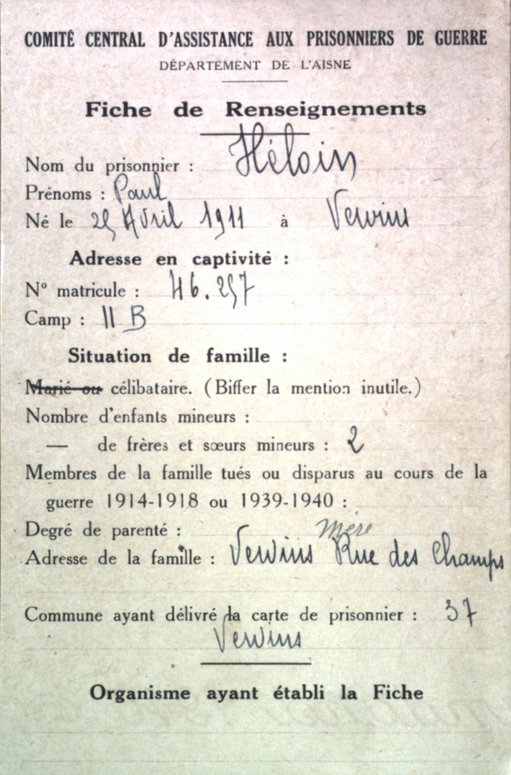 COMITÉ CENTRAL D'ASSISTANCE AUX PRISONNIERS DE GUERRE
DÉPARTEMENT DE L'AISNE
Fiche de Renseignements
Nom du prisonnier : Héloin
Prénoms : Paul
Né le 25 Avril 1911 à Vervins
Adresse en captivité :
N° matricule : 46.257
Camp : II B
Situation de famille :
Marié ou célibataire. (Biffer la mention inutile.)
Nombre d'enfants mineurs :
— de frères et sœurs mineurs : 2
Membres de la famille tués ou disparus au cours de la
guerre 1914-1918 ou 1939-1940 :
Degré de parenté : mère
Adresse de la famille : Vervins Rue des Champs
Commune ayant délivré la carte de prisonnier : 37
Vervins
Organisme ayant établi la Fiche